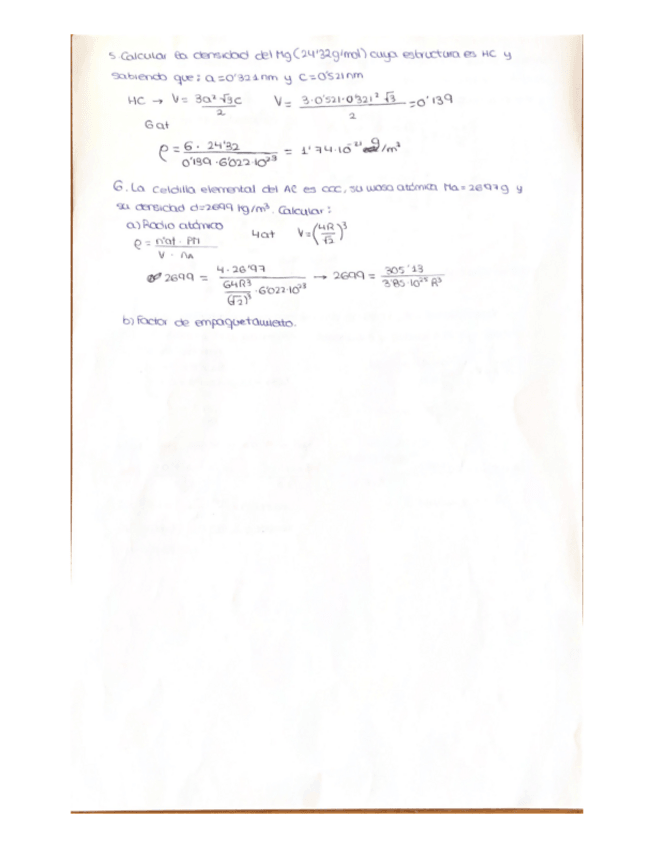 5. Calcular la densidad del Mg (24'32g/mol) cuya estructura es HC y
sabiendo que: a=0'321nm y c=0'521nm
HC → V = 3a²√3c / 2   V = 3·0'521·0'321²√3 / 2 = 0'139
6 at
ρ = 6 · 24'32 / 0'139 · 6'022·10²³ = 1'74·10⁻²¹ g/m³
6. La celdilla elemental del Al es ccc, su masa atómica Ma = 26'97g y
su densidad d=2699 kg/m³. Calcular:
a) Radio atómico   4at   V=(4R/√2)³
ρ = nºat · PM / V · nA
2699 = 4·26'97 / 64R³/(√2)³ · 6'022·10²³ → 2699 = 305'13 / 3'85·10²⁵R³
b) Factor de empaquetamiento.